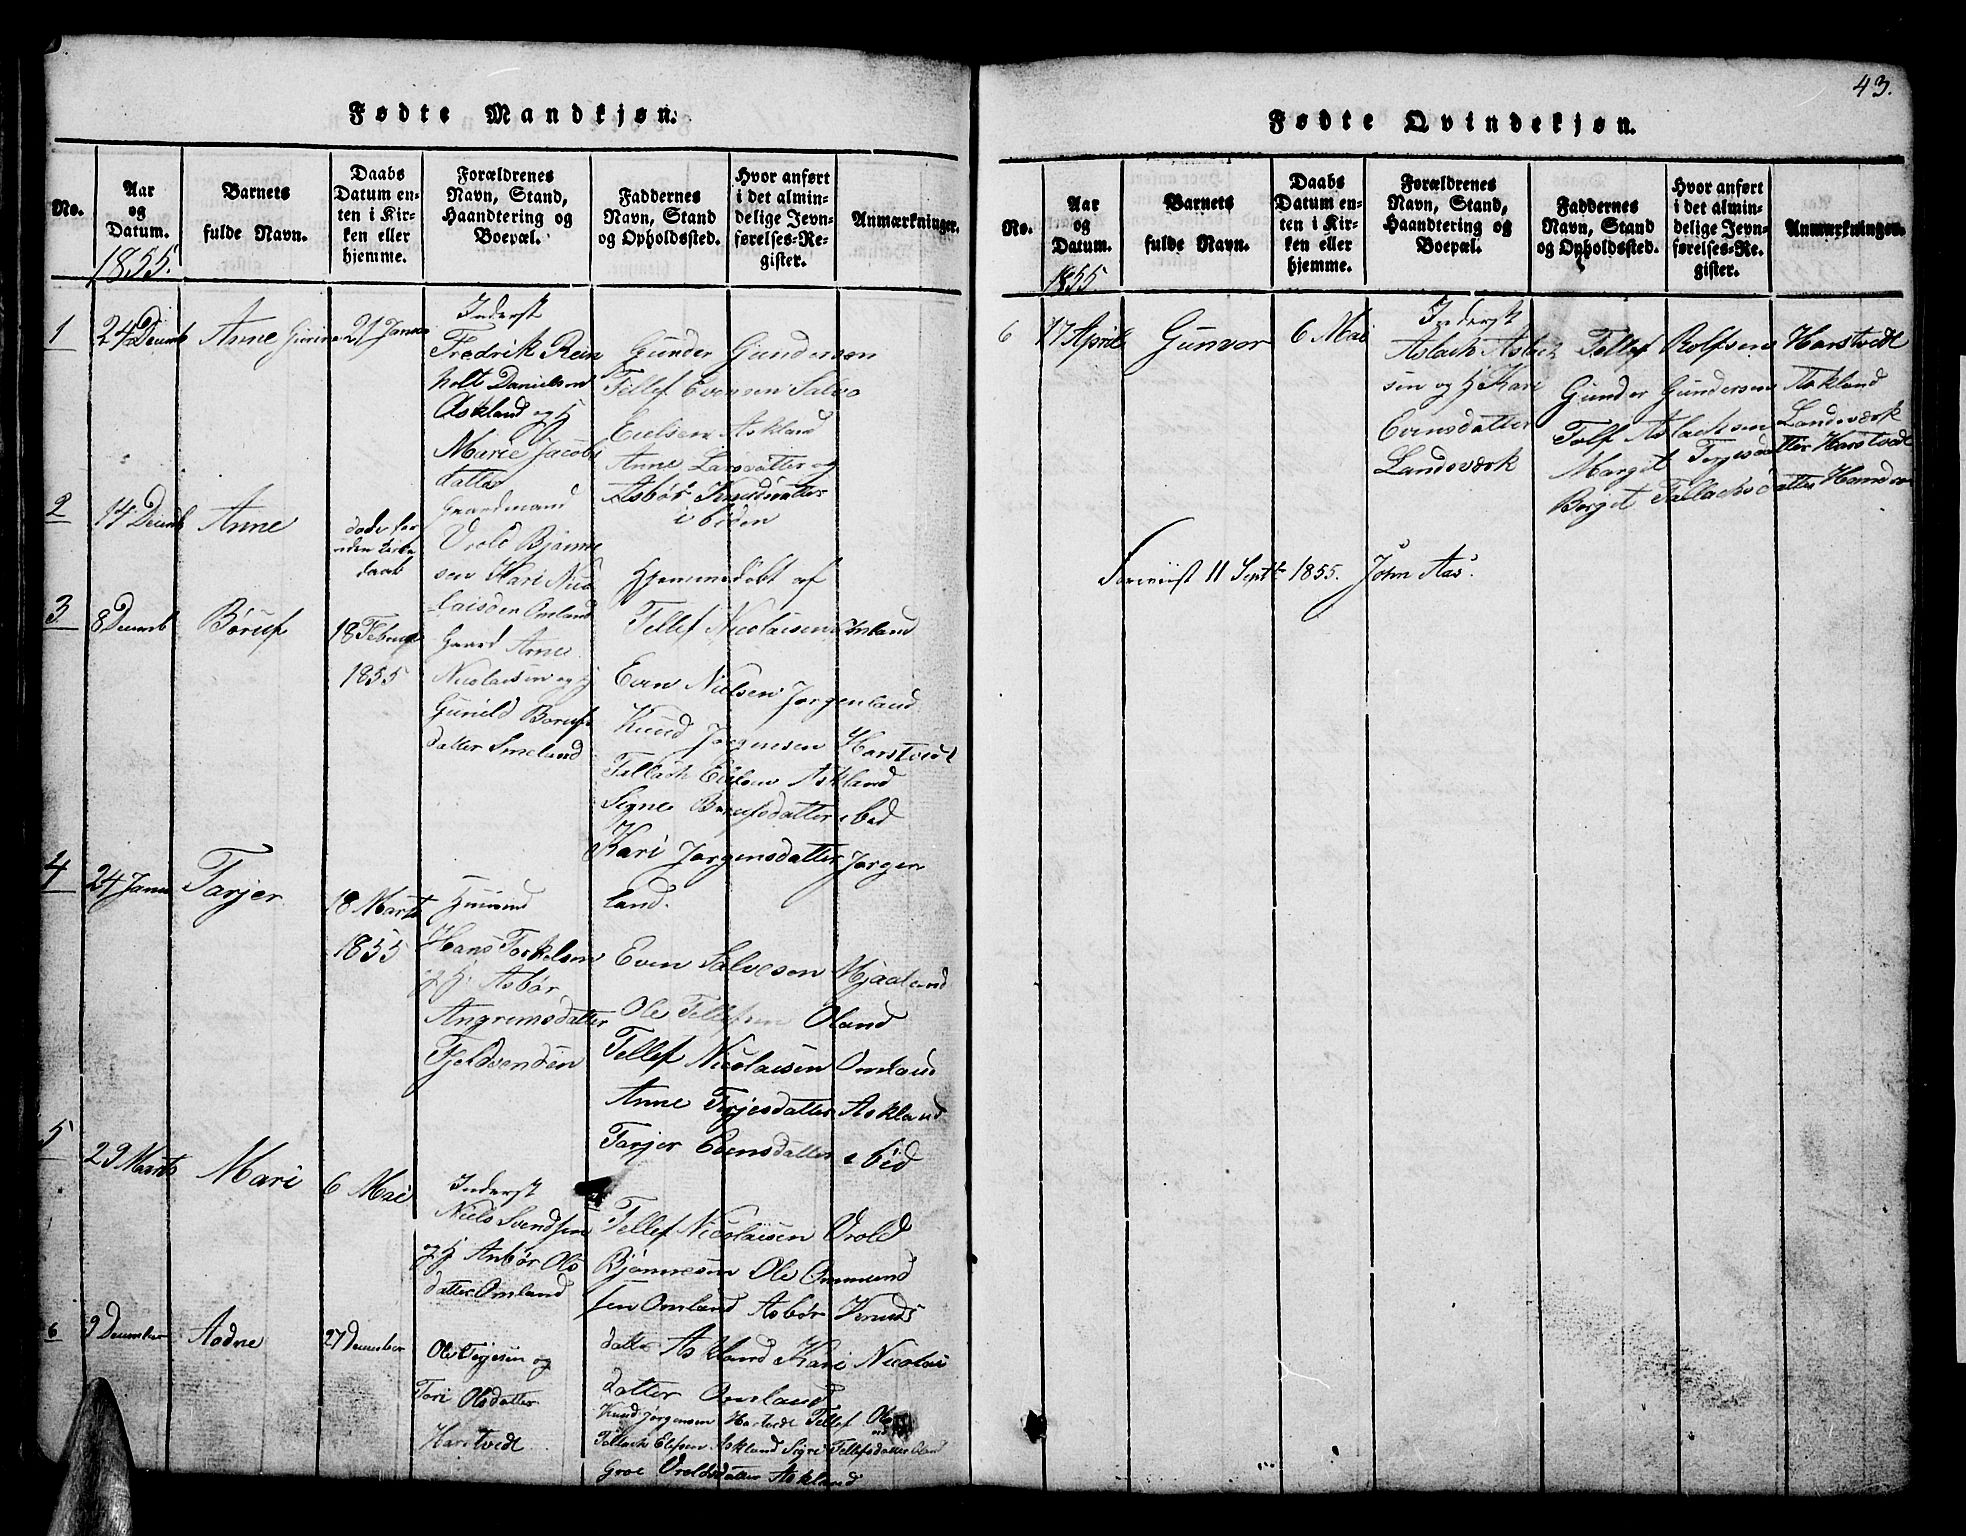 43.
Fødte Mandkjøn.
No.
Aar
og
Datum.
1855.
Barnets
fulde Navn.
Daabs
Datum en-
ten i Kir-
ken eller
hjemme.
Forældrenes
Navn, Stand,
Haandtering og
Boepæl.
Faddernes
Navn, Stand
og Opholdssted.
Hvor anført
i det almin-
delige Jevn-
førelses-Re-
gister.
Anmærkninger.
1
24 Decemb
Anne
21
Inderst
Fredrik Rein
holt Danielsen
Askland og H
Marie Jacobs
datter
Gunder Gundersen
Tellef Evensen
Askland
Anne Larsdatter og
Asbør Knudsdatter
ibiden
2
14 Decemb
Anne
døde for
uden Kirke
daab
Gaardmand
Vrold Bjønne
sen Kari Nico
laisden Omland
Hjemmedøbt af
Tellef Nicolaisen Omland
3
8 Decemb
Børuf
18 Februar
1855
Gaard Arne
Nicolaisen og H
Gunild Børufs
datter Smeland
Even Nielsen Jorgenland
Knud Jorgensen Harstvedt
Tallack Elefsen Askland
Signe Børufsdatter ibid
Kari Jorgensdatter Jorgen
land.
4
24 Janu
Tarjer
18 Marts
1855
Huusmd
Hans Torkelsen
og H. Asbør
Angrimsdatter
Fjeldvenden
Even Salvesen Mjaaland
Ole Tellefsen Oland
Tellef Nicolaisen Omland
Anne Terjesdatter Askland
Tarjer Evensdatter ibid
5
29 Marts
Mari
6 Mai
Inderst
Niels Svendsen
og H Anbør Ols
datter Omland
Tellef Nicolaisen Vrold
Bjønnesen Ole Ommund
sen Omland Asbør Knuds
datter Askland Kari Nicolai
datter Omland
6
9 December
Aadne
27 December
Ole Terjesen og
Tari Olsdatter
Harstvedt
Knud Jørgensen Harstvedt Tellef Ols
Tallack Elefsen Askland Sigri Tellefsdatter Oland
Groe Vroldsdatter Askland
Fødte Qvindekjøn.
No.
Aar
og
Datum.
1855
Barnets
fulde Navn.
Daabs
Datum en-
ten i Kir-
ken eller
hjemme.
Forældrenes
Navn, Stand,
Haandtering og
Boepæl.
Faddernes
Navn, Stand
og Opholdssted.
Hvor anført
i det almin-
delige Jevn-
førelses-Re-
gister.
Anmærkninger.
6
17 April
Gunvor
6 Mai
Inderst
Aslach Aslach
sen og H Kari
Evensdatter
Landsværk
Tellef Rolfsen Harstvedt
Gunder Gundersen Askland
Tolf Aslachsen Landsværk
Margit Terjesdatter Harstvedt
Børget Tallachsdatter
11 Septb 1855. John Aas.